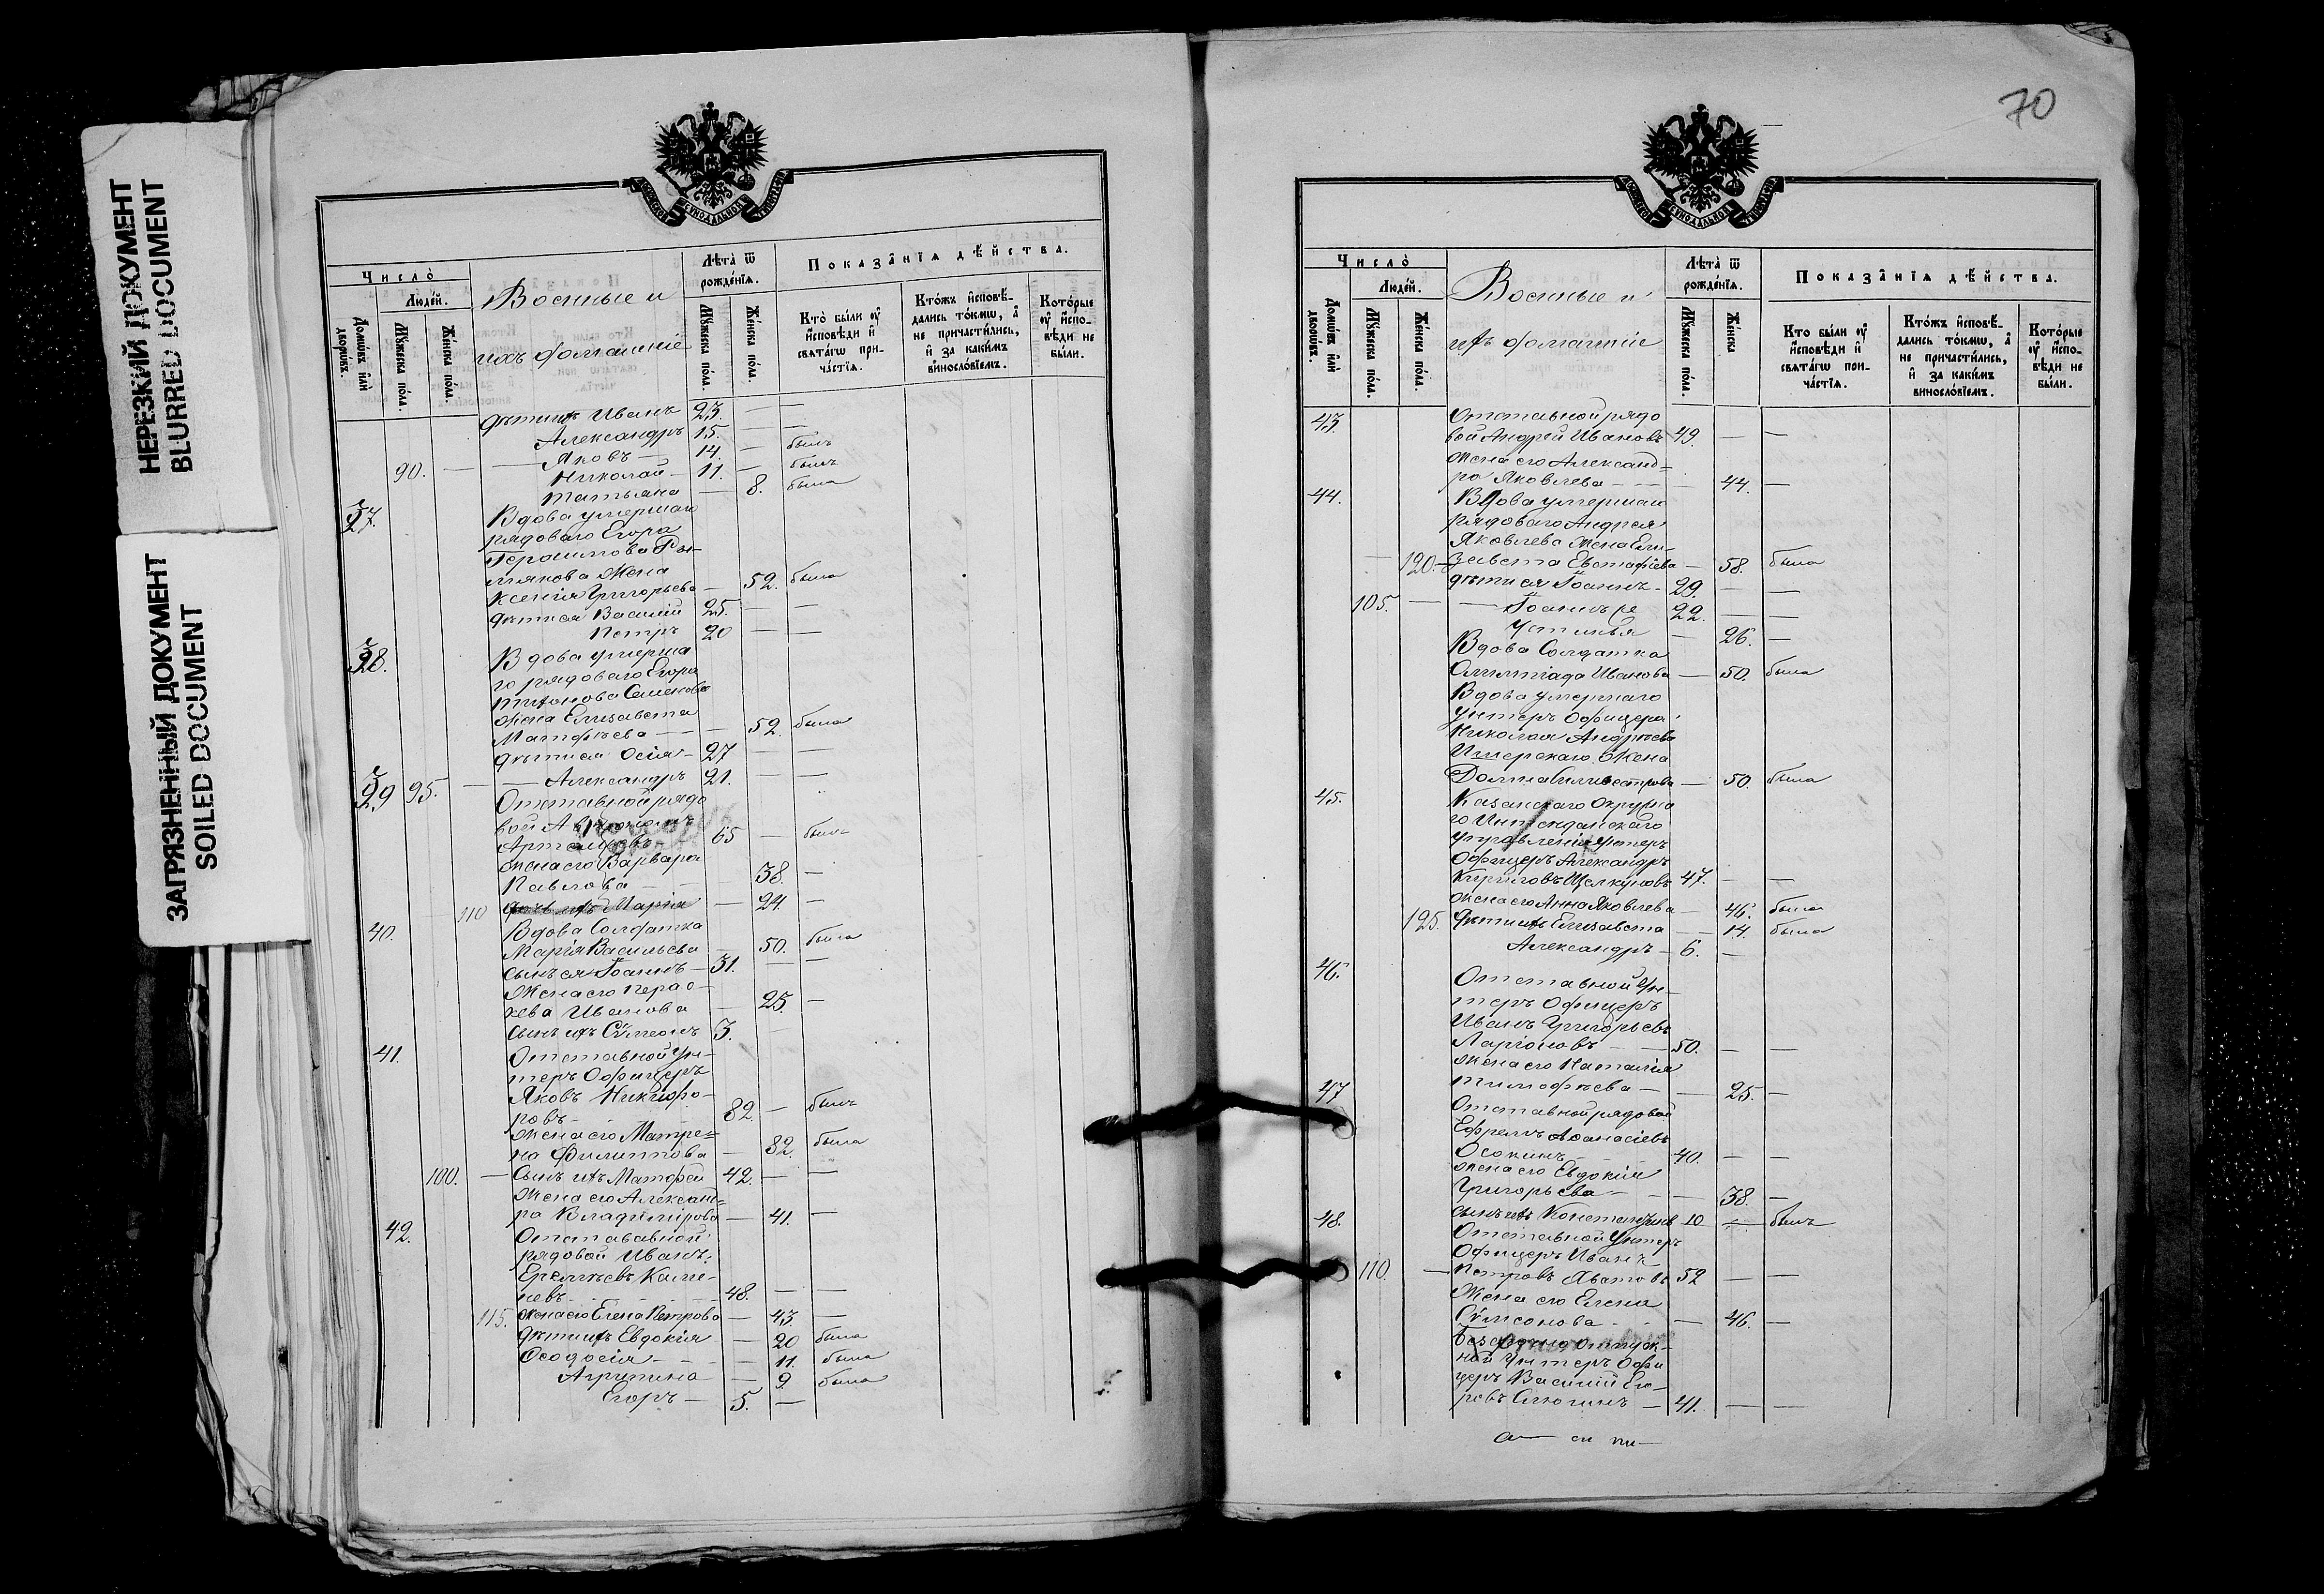 НЕРЕЗКИЙ ДОКУМЕНТ
BLURRED DOCUMENT
ЗАГРЯЗНЕННЫЙ ДОКУМЕНТ
SOILED DOCUMENT
Число̀
Люде́й.
Домѡ́въ и҆лѝ дворѡ́въ.
Мꙋ́жеска по́ла.
Же́нска по́ла.
Военные и
ихъ домашніе
Лѣта̀ ѿ рожде́нїѧ.
Мꙋ́жеска по́ла.
Же́нска по́ла.
Показа̂нїѧ дѣ́йства.
Кто̀ бы́ли ᲂу҆ и҆сповѣди и҆ свѧта́гѡ при- ча́стїѧ.
Кто́жъ и҆сповѣ́- дались то́кмѡ, а҆ не причасти́лись, и҆ за каки́мъ виносло́вїемъ.
Кото́рые ᲂу҆ и҆спо- вѣди не бы́ли.
дѣти ихъ Иванъ 23. — —
Александръ 15. — —
Яковъ — 14. — былъ
90. — Николай — 11. — былъ
Татьяна — 8. была
37. Вдова умершаго
рядоваго Егора
Герасимова
жена
Ксенія Григорьева — 52. была
дѣти ея Василій 25. — —
Петръ 20 — —
38. Вдова умерша
го рядоваго Егора
жена Елизавета
Матфѣева — — 52. была
дѣти ея Осія — 27 — —
95. — Александръ 21. — —
39 Отставной рядо
вой
65 — былъ
жена его Варвара
Павлова — — 38. —
110 Марія — 24. —
40. Вдова Солдатка
Марія Васильева — 50. была
сынъ ея Іоаннъ — 31. — —
жена его Парас-
кева Иванова — 25. —
сынъ ихъ Сѵмеонъ 3.
41. Отставной Ун-
теръ Офицеръ
Яковъ Никифо-
ровъ — 82. — былъ
жена его Матре-
на Филиппова — 82. была
100. — Сынъ ихъ Матфей 42. — —
жена его Алексан-
ра Владимірова — 41. —
42. Отстававной
рядовой Иванъ
48. — —
115. жена его Елена Петрова — 43 —
дѣти ихъ Евдокія — 20 была
Ѳеодосія — — 11. была
Агрипина — 9. была
Егоръ — 5. —
70
Число̀
Люде́й.
Домѡ́въ и҆лѝ дворѡ́въ.
Мꙋ́жеска по́ла.
Же́нска по́ла.
Военные и
ихъ домашніе
Лѣта̀ ѿ рожде́нїѧ.
Мꙋ́жеска по́ла.
Же́нска
Показа̂нїѧ дѣ́йства.
Кто бы́ли ᲂу҆ и҆сповѣди и҆ свѧта́гѡ при- ча́стїѧ.
Кто́жъ и҆сповѣ́- дались то́кмѡ, а҆ не причасти́лись, и҆ за каки́мъ виносло́вїемъ.
Кото́рые ᲂу҆ и҆спо- вѣди не бы́ли.
43. Отставной рядо
вой Андрей Ивановъ 49. — —
жена его Александ-
ра Яковлева — — 44. —
44. Вдова умершаго
рядоваго Андрея
Яковлева жена Ели-
— 120. — завета Евстафіева — 58. была
дѣти ея Іоаннъ — 29. — —
105. — — Іоаннъ ре 22. — —
Устинья — 26. —
Вдова Солдатка
Олимпіада Иванова — 50. была
Вдова умершаго
Унтеръ Офицера
Николая Андреева
жена
Домна Сильвестрова — 50. была
45. Казанскаго Окружна
го Интенданскаго
Управленія Унтеръ
Офицеръ Александръ
Кириловъ Щелкуновъ 47. — —
жена его Анна Яковлева — 46. была
125. дѣти ихъ Елизавета — 14. была
Александръ — 6. —
46. Отставной Ун-
теръ Офицеръ
Иванъ Григорьевъ
Ларіоновъ — 50. — —
жена его Наталія
Тимофѣева — — 25. —
47 Отставной рядовой
Ефремъ Аѳанасіевъ
Осокинъ — 40. — —
жена его Евдокія
Григорьева — — 38. —
сынъ ихъ Константинъ 10 — былъ
48. Отставной Унтеръ
Офицеръ Иванъ
110. — Петровъ Хватовъ 52 — —
Жена его Елена
Сѵмеонова — — 46. —
Безсрочно отпуск-
ной Унтеръ Офи
церъ Василій Его-
ровъ — 41. — —